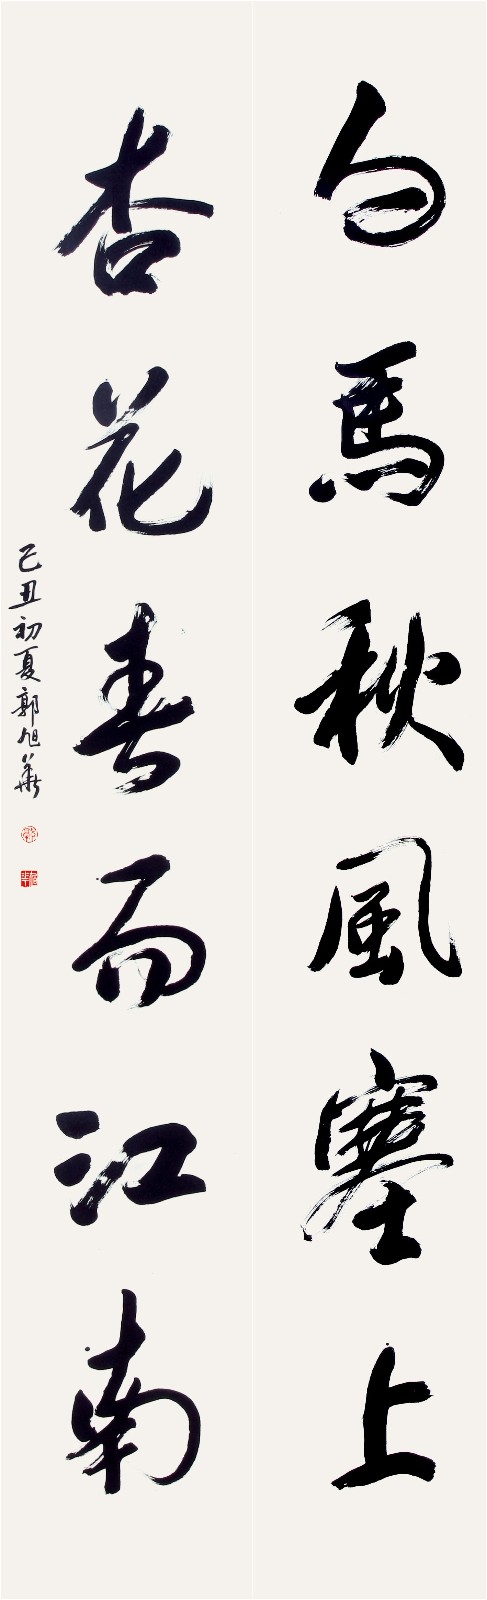 白馬秋風塞上
杏花春雨江南
己丑初夏郭旭華